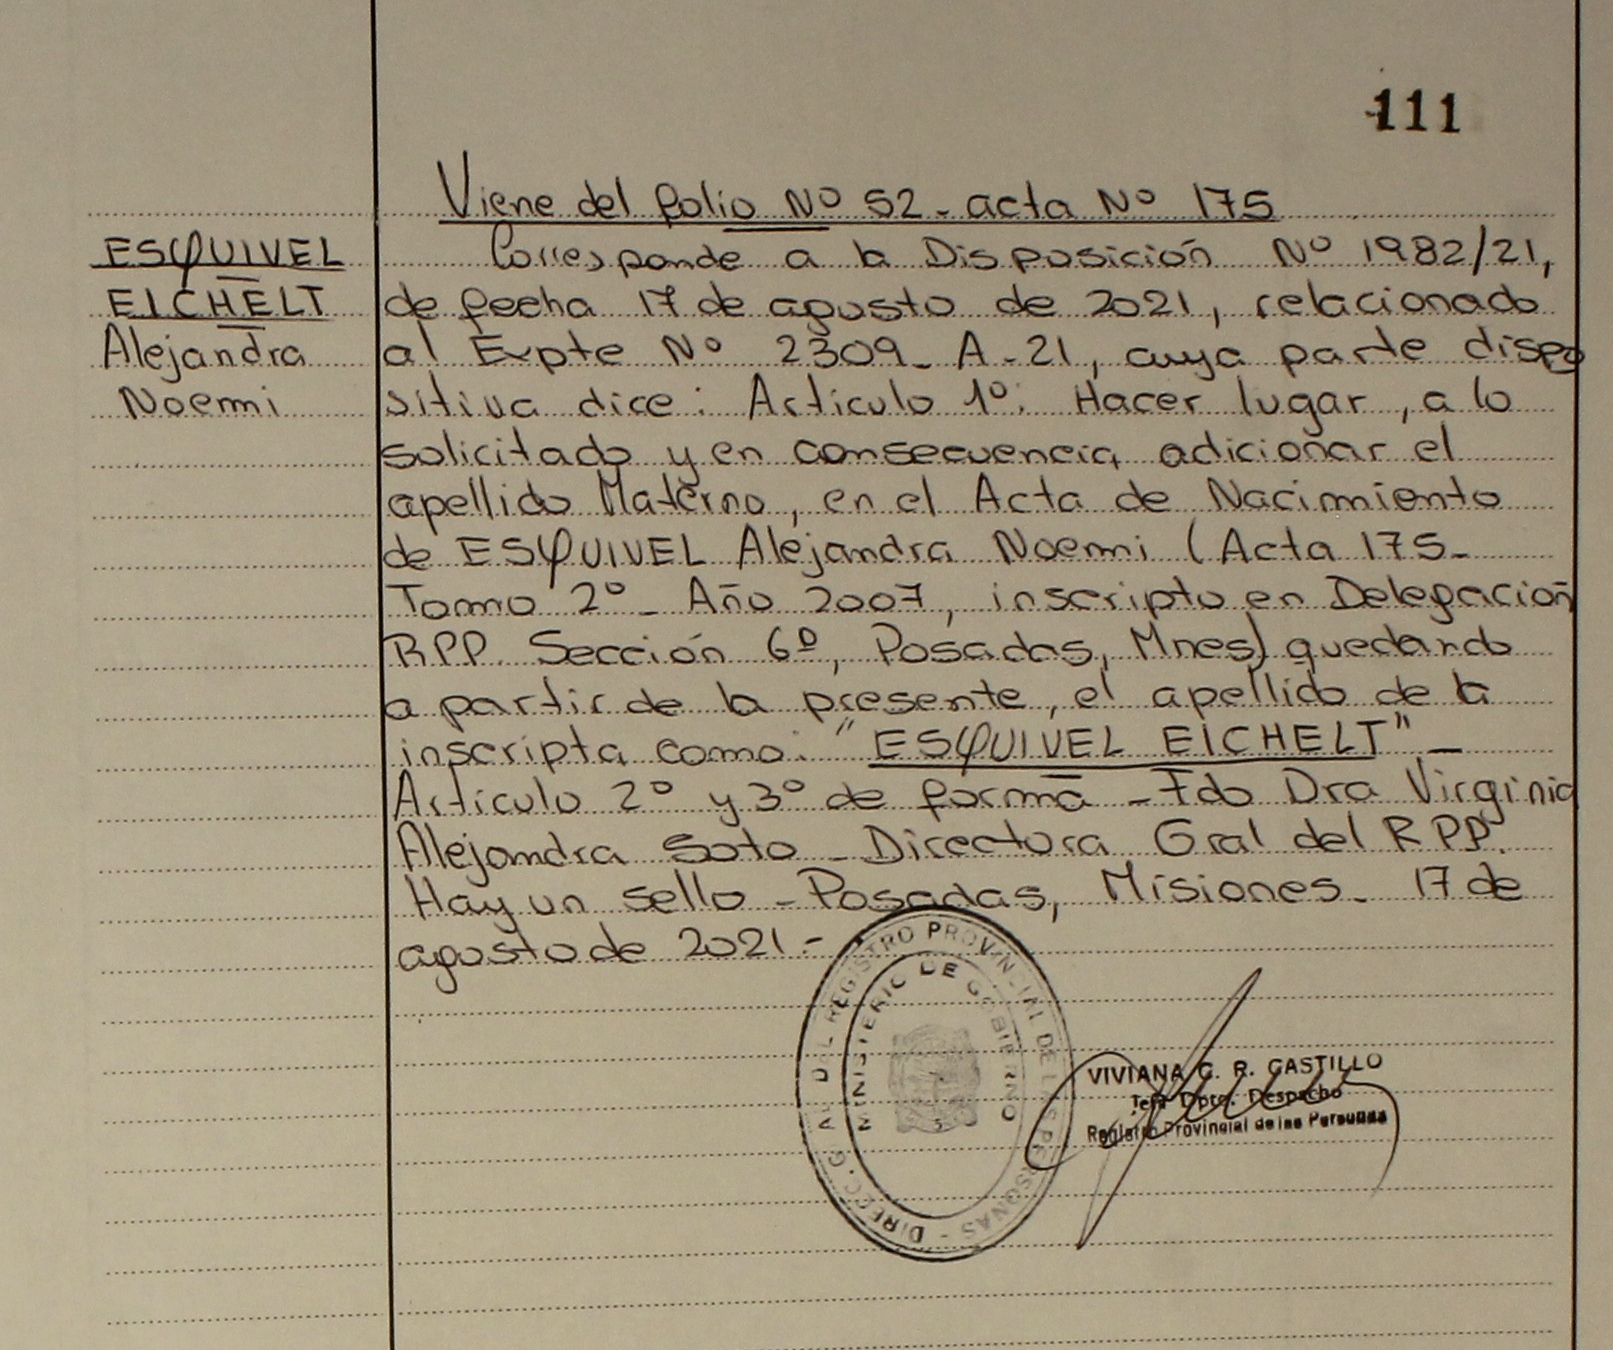 111
Viene del folio Nº 52 - acta Nº 175
ESQUIVEL
EICHELT
Alejandra
Noemi
Corresponde a la Disposición Nº 1982/21,
de fecha 17 de agosto de 2021, relacionado
al Expte Nº 2309 - A - 21, cuya parte dispo
sitiva dice: Artículo 1º: Hacer lugar, a lo
solicitado y en consecuencia, adicionar el
apellido Materno, en el Acta de Nacimiento
de ESQUIVEL Alejandra Noemi (Acta 175 -
Tomo 2º - Año 2007, inscripto en Delegación
RPP. Sección 6º, Posadas, Mnes) quedando
a partir de la presente, el apellido de la
inscripta como: "ESQUIVEL EICHELT" -
Artículo 2º y 3º de forma - Fdo Dra Virginia
Alejandra Soto - Directora Gral del RPP.
Hay un sello - Posadas, Misiones - 17 de
agosto de 2021 -
DIREC. GRAL DEL REGISTRO PROVINCIAL DE LAS PERSONAS -
MINISTERIO DE GOBIERNO
VIVIANA C. R. CASTILLO
Jefa Dpto. Despacho
Registro Provincial de las Personas